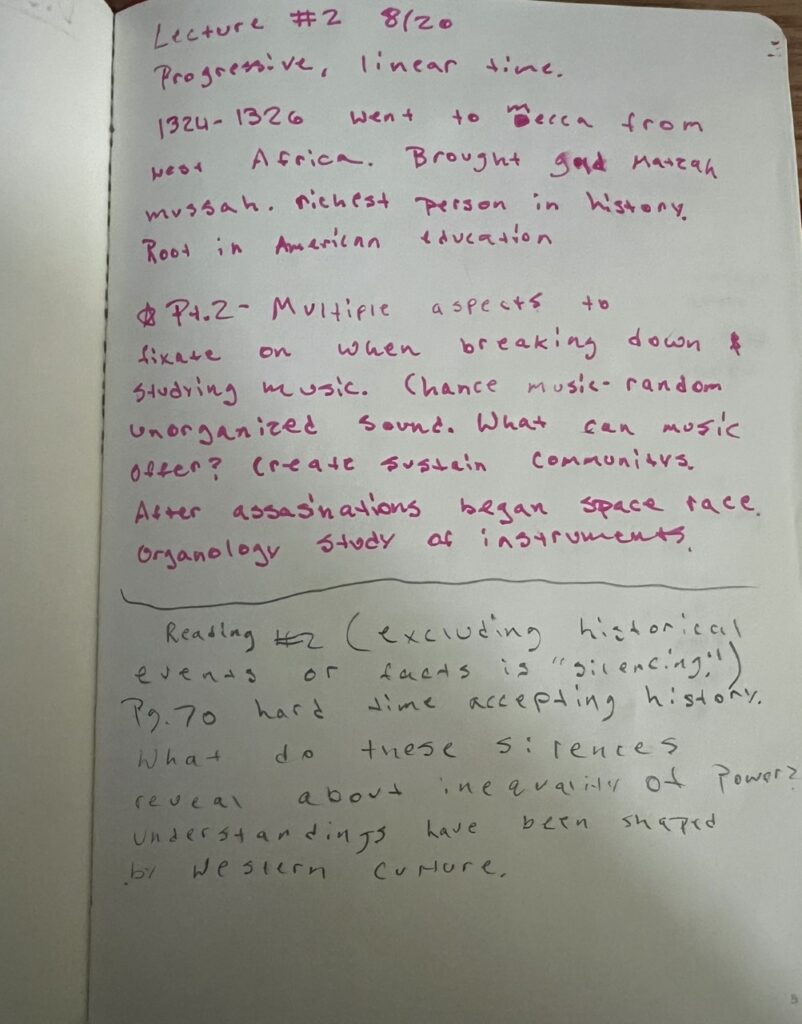 Lecture #2 8/20
Progressive, linear time.
1324-1326 went to mecca from
west Africa. Brought Matzah
mussah. richest person in history.
Root in American education
Pt.2- Multiple aspects to
fixate on when breaking down &
studying music. Chance music- random
unorganized sound. What can music
offer? Create sustain communitys.
After assasinations began space race.
Organology study of instruments.
Reading #2 (excluding historical
events or facts is "silencing.")
Pg.70 hard time accepting history.
What do these silences
reveal about inequality of Power?
understandings have been shaped
by Western culture.